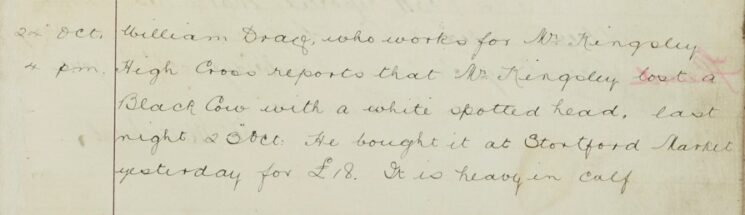 24 Oct. William Dray, who works for Mr. Kingsley
4 pm. High Cross reports that Mr. Kingsley lost a
Black Cow with a white spotted head, last
night 23 Oct. He bought it at Stortford Market
yesterday for £18. It is heavy in calf